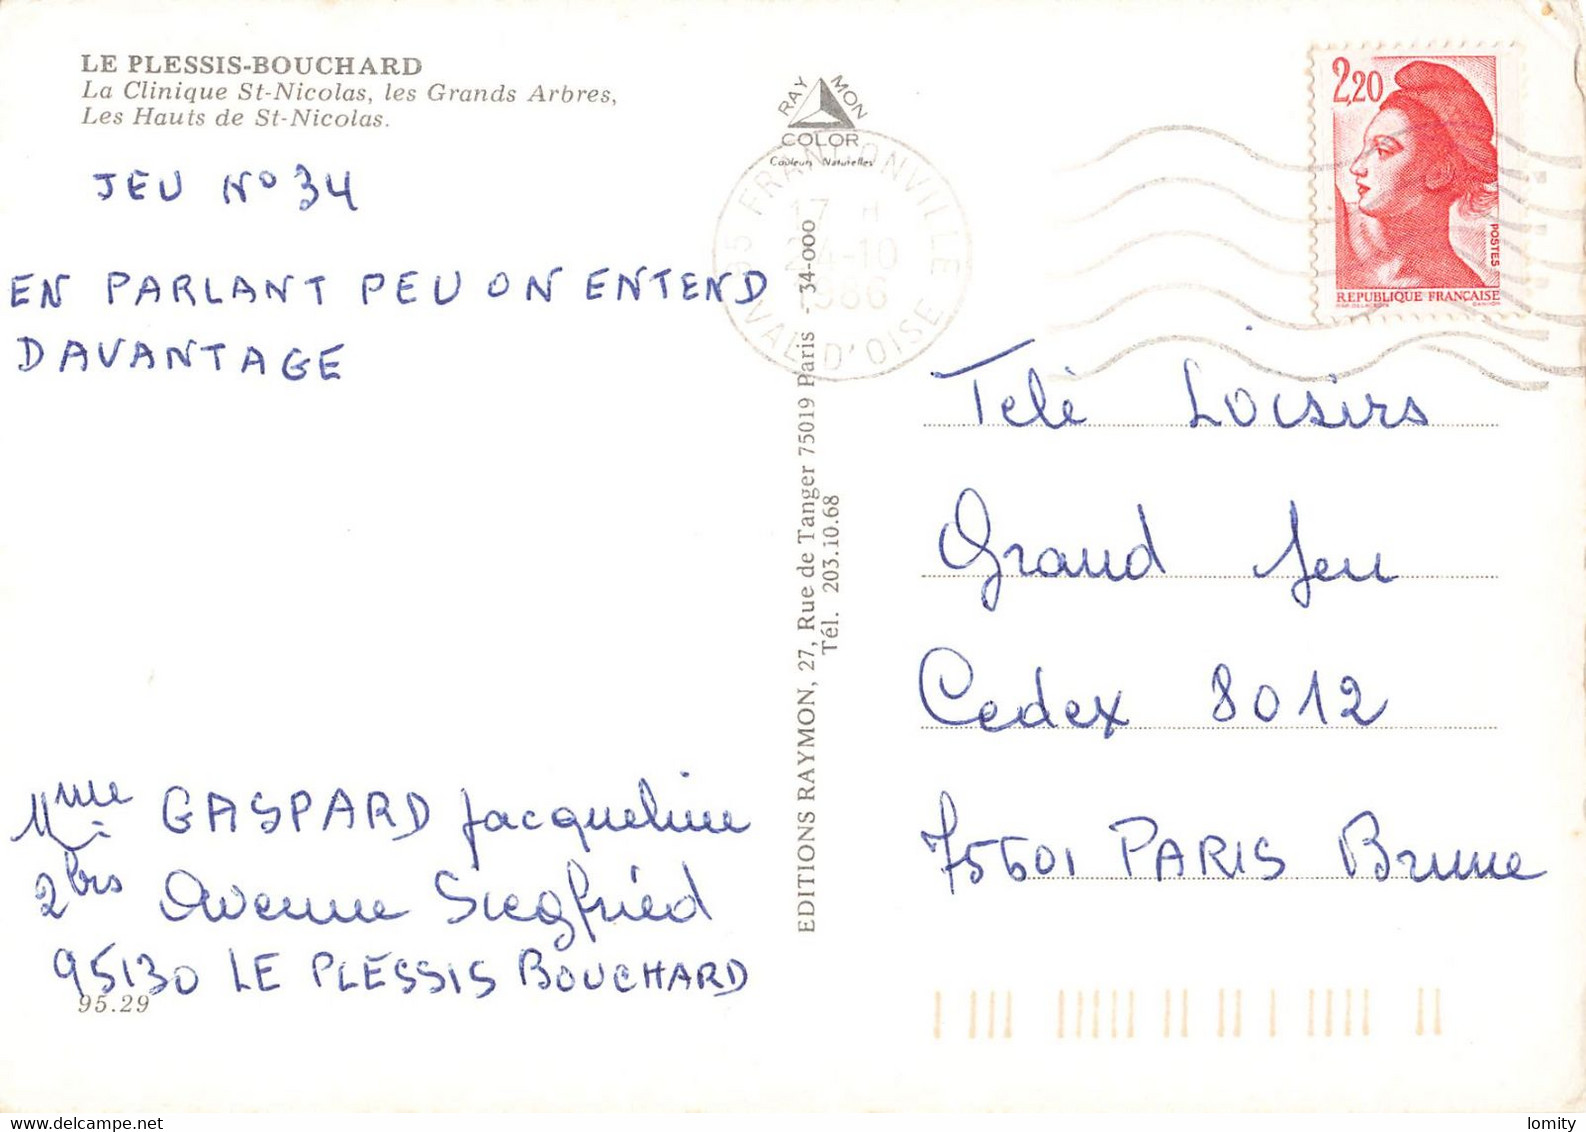 LE PLESSIS-BOUCHARD
La Clinique St-Nicolas, les Grands Arbres,
Les Hauts de St-Nicolas.
JEU N° 34
EN PARLANT PEU ON ENTEND
DAVANTAGE
Mme GASPARD Jacqueline
2 bis Avenue Siegfried
95130 LE PLESSIS BOUCHARD
95.29
RAYMON
COLOR
Couleurs Naturelles
95 FRANCONVILLE
17 H
24-10
1986
VAL D'OISE
EDITIONS RAYMON, 27, Rue de Tanger 75019 Paris - 34-000
Tél. 203.10.68
2,20
POSTES
REPUBLIQUE FRANÇAISE
Telé Loisirs
Grand Jeu
Cedex 8012
75601 PARIS Brune
lomity